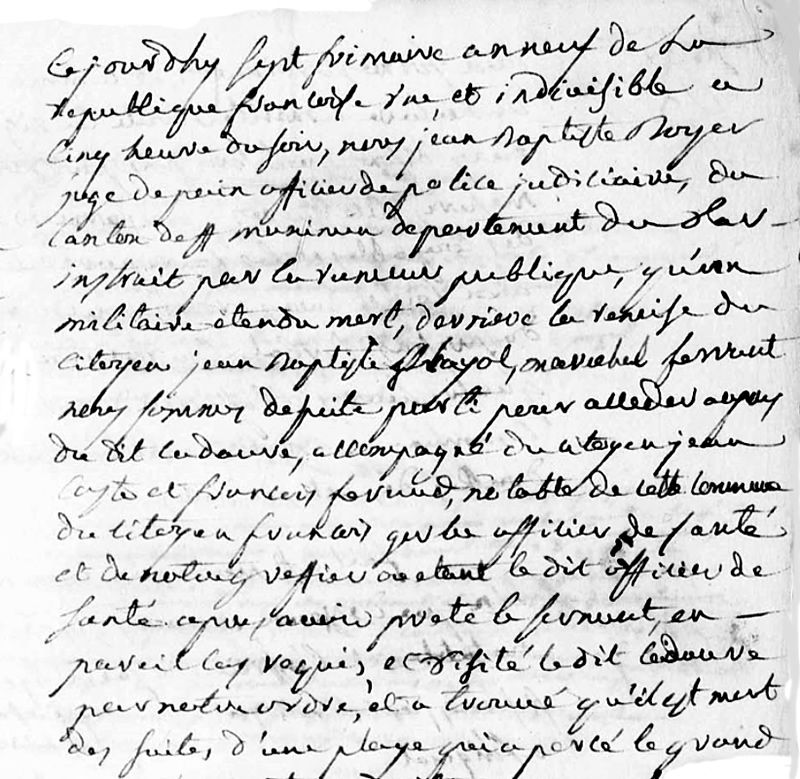 Cejourdhy sept frimaire an neuf de La
republique francoise une et indivisible a
Cinq heure du soir, nous jean Baptiste Boyer
juge de paix officier de police judiciaire, du
Canton de departement du Var
instruit par la rumeur publique, qu'un
militaire etendu mort, derriere la remise du
Citoyen jean Baptiste marechal ferrant
nous sommes de suite parti pour alleder aupres
du dit cadavre, accompagné du citoyen jean
Coste et francois feraud, notable de cette Commune
du Citoyen francois officier de santé
et de notre greffier ou etant le dit officier de
santé apres avoir preté le serment, en
pareil Cas requis, et visité le dit Cadavre
par notre ordre, et a trouvé qu'il est mort
des suites, d'une playe qui a percé le grand